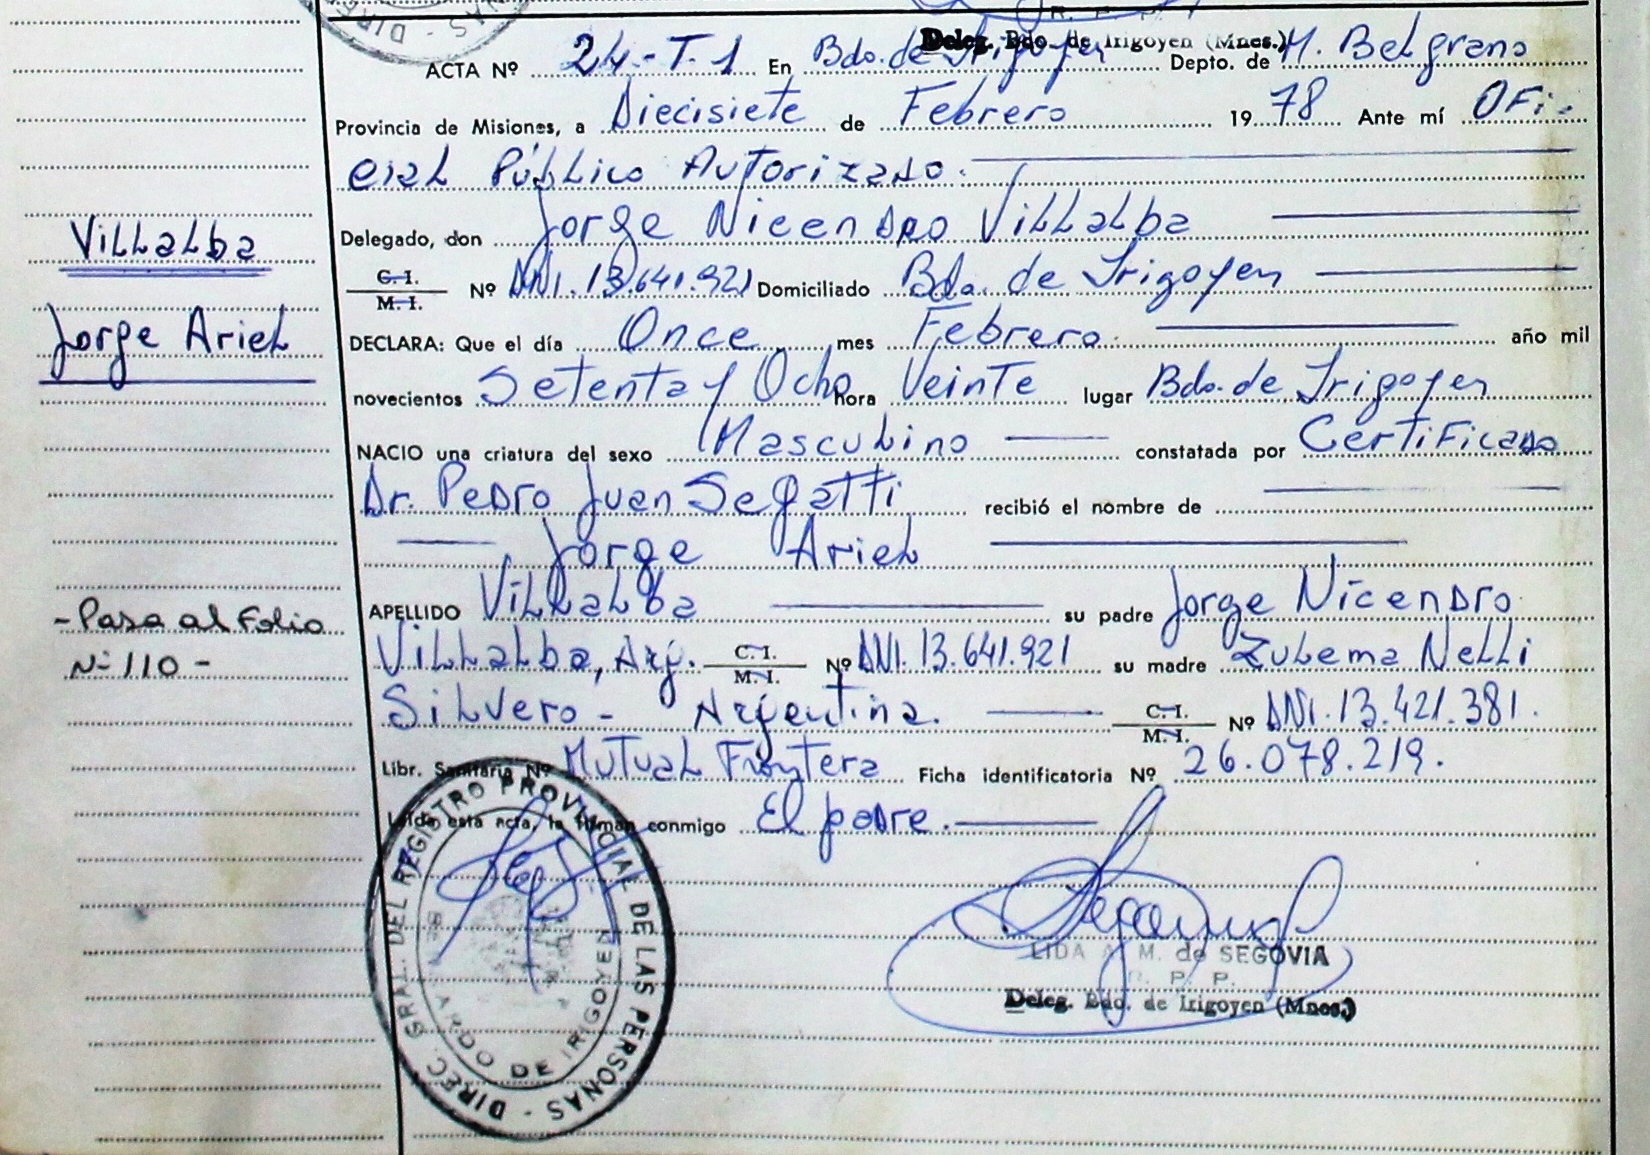 R. P. P.
Deleg. Bdo. de Irigoyen (Mnes.)
ACTA Nº 24.-T.1 En Bdo. de Irigoyen Depto. de M. Belgrano
Provincia de Misiones, a Diecisiete de Febrero 1978 Ante mí Ofi-
cial Público Autorizado.
Delegado, don Jorge Nicendro Villalba
C. I.
M. I. Nº DNI. 13.641.921 Domiciliado Bdo. de Irigoyen
DECLARA: Que el día Once mes Febrero. año mil
novecientos Setenta y Ocho hora Veinte lugar Bdo. de Irigoyen
NACIO una criatura del sexo Masculino constatada por Certificado
Dr. Pedro Juan Segatti recibió el nombre de
Jorge Ariel
APELLIDO Villalba su padre Jorge Nicendro
Villalba, Arg. C. I. M. I. Nº DNI. 13.641.921 su madre Zulema Nelli
Silvero - Argentina. C. I. M. I. Nº DNI. 13.421.381.
Libr. Sanitaria Nº Mutual Frontera Ficha identificatoria Nº 26.078.219.
Leída esta acta, la firman conmigo El padre.
LIDA A. M. de SEGOVIA
R. P. P.
Deleg. Bdo. de Irigoyen (Mnes.)
DIREC. GRAL. DEL REGISTRO PROVINCIAL DE LAS PERSONAS -
BERNARDO DE IRIGOYEN
Villalba
Jorge Ariel
- Pasa al Folio
Nº 110 -